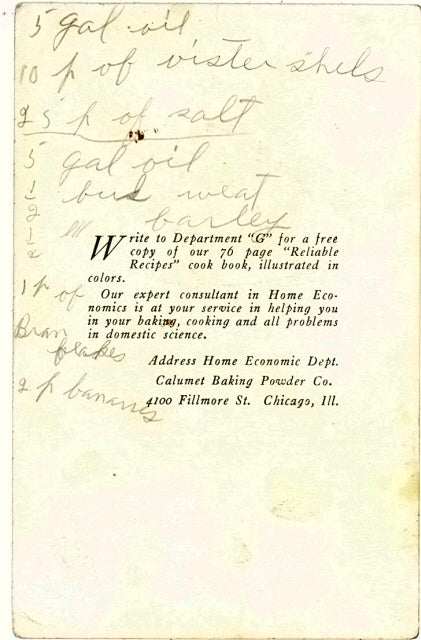 5 gal oil
10 p of oister shels
25 p of salt
5 gal oil
1/2 bus weat
1/2 " barley
Write to Department "G" for a free
copy of our 76 page "Reliable
Recipes" cook book, illustrated in
colors.
Our expert consultant in Home Eco-
nomics is at your service in helping you
in your baking, cooking and all problems
in domestic science.
Address Home Economic Dept.
Calumet Baking Powder Co.
4100 Fillmore St. Chicago, Ill.
1 p of
Bran
flakes
2 p bananes